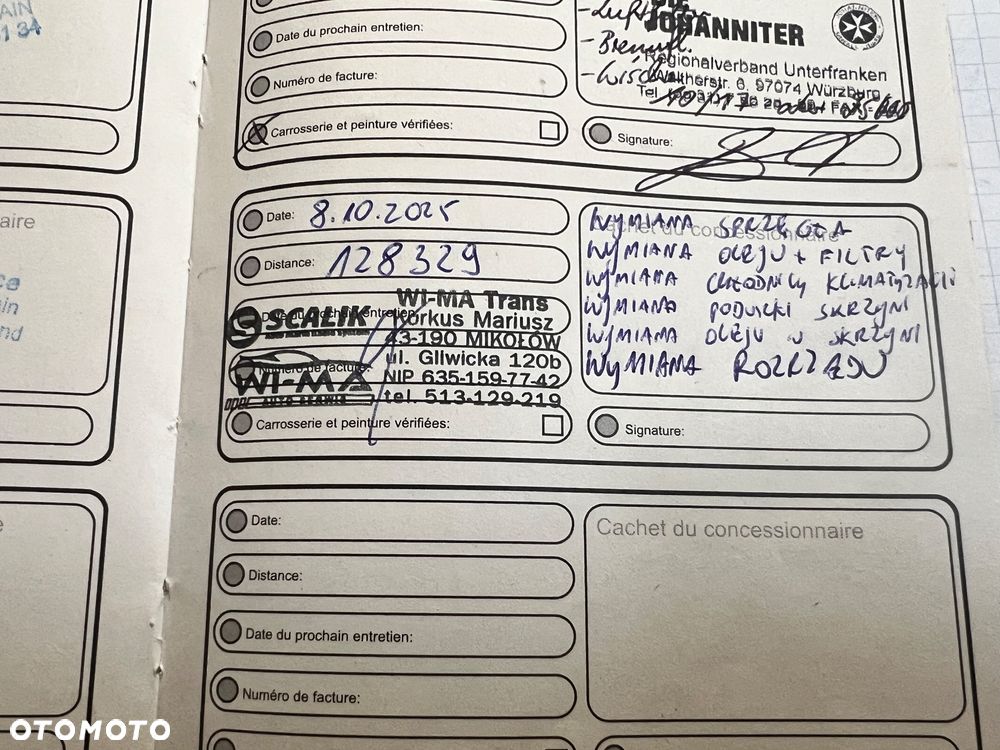 AIN
Date du prochain entretien:
Numéro de facture:
Carrosserie et peinture vérifiées:
- Luftfilter
- Brennfl.
- Wisch
JOHANNITER
Regionalverband Unterfranken
Waltherstr. 6, 97074 Würzburg
Signature:
aire
Date: 8.10.2025
Distance: 128329
Date du prochain entretien:
Numéro de facture:
SCALIK
WI-MA
OPEL AUTO SERWIS
WI-MA Trans
Korkus Mariusz
43-190 MIKOŁÓW
ul. Gliwicka 120b
NIP 635-159-77-42
tel. 513-129-219
Carrosserie et peinture vérifiées:
Cachet du concessionnaire
WYMIANA SPRZĘGŁA
WYMIANA OLEJU + FILTRY
WYMIANA CHŁODNICY KLIMATYZACJI
WYMIANA PODUSZKI SKRZYNI
WYMIANA OLEJU W SKRZYNI
WYMIANA ROZRZĄDU
Signature:
Date:
Distance:
Date du prochain entretien:
Numéro de facture:
Cachet du concessionnaire
OTOMOTO